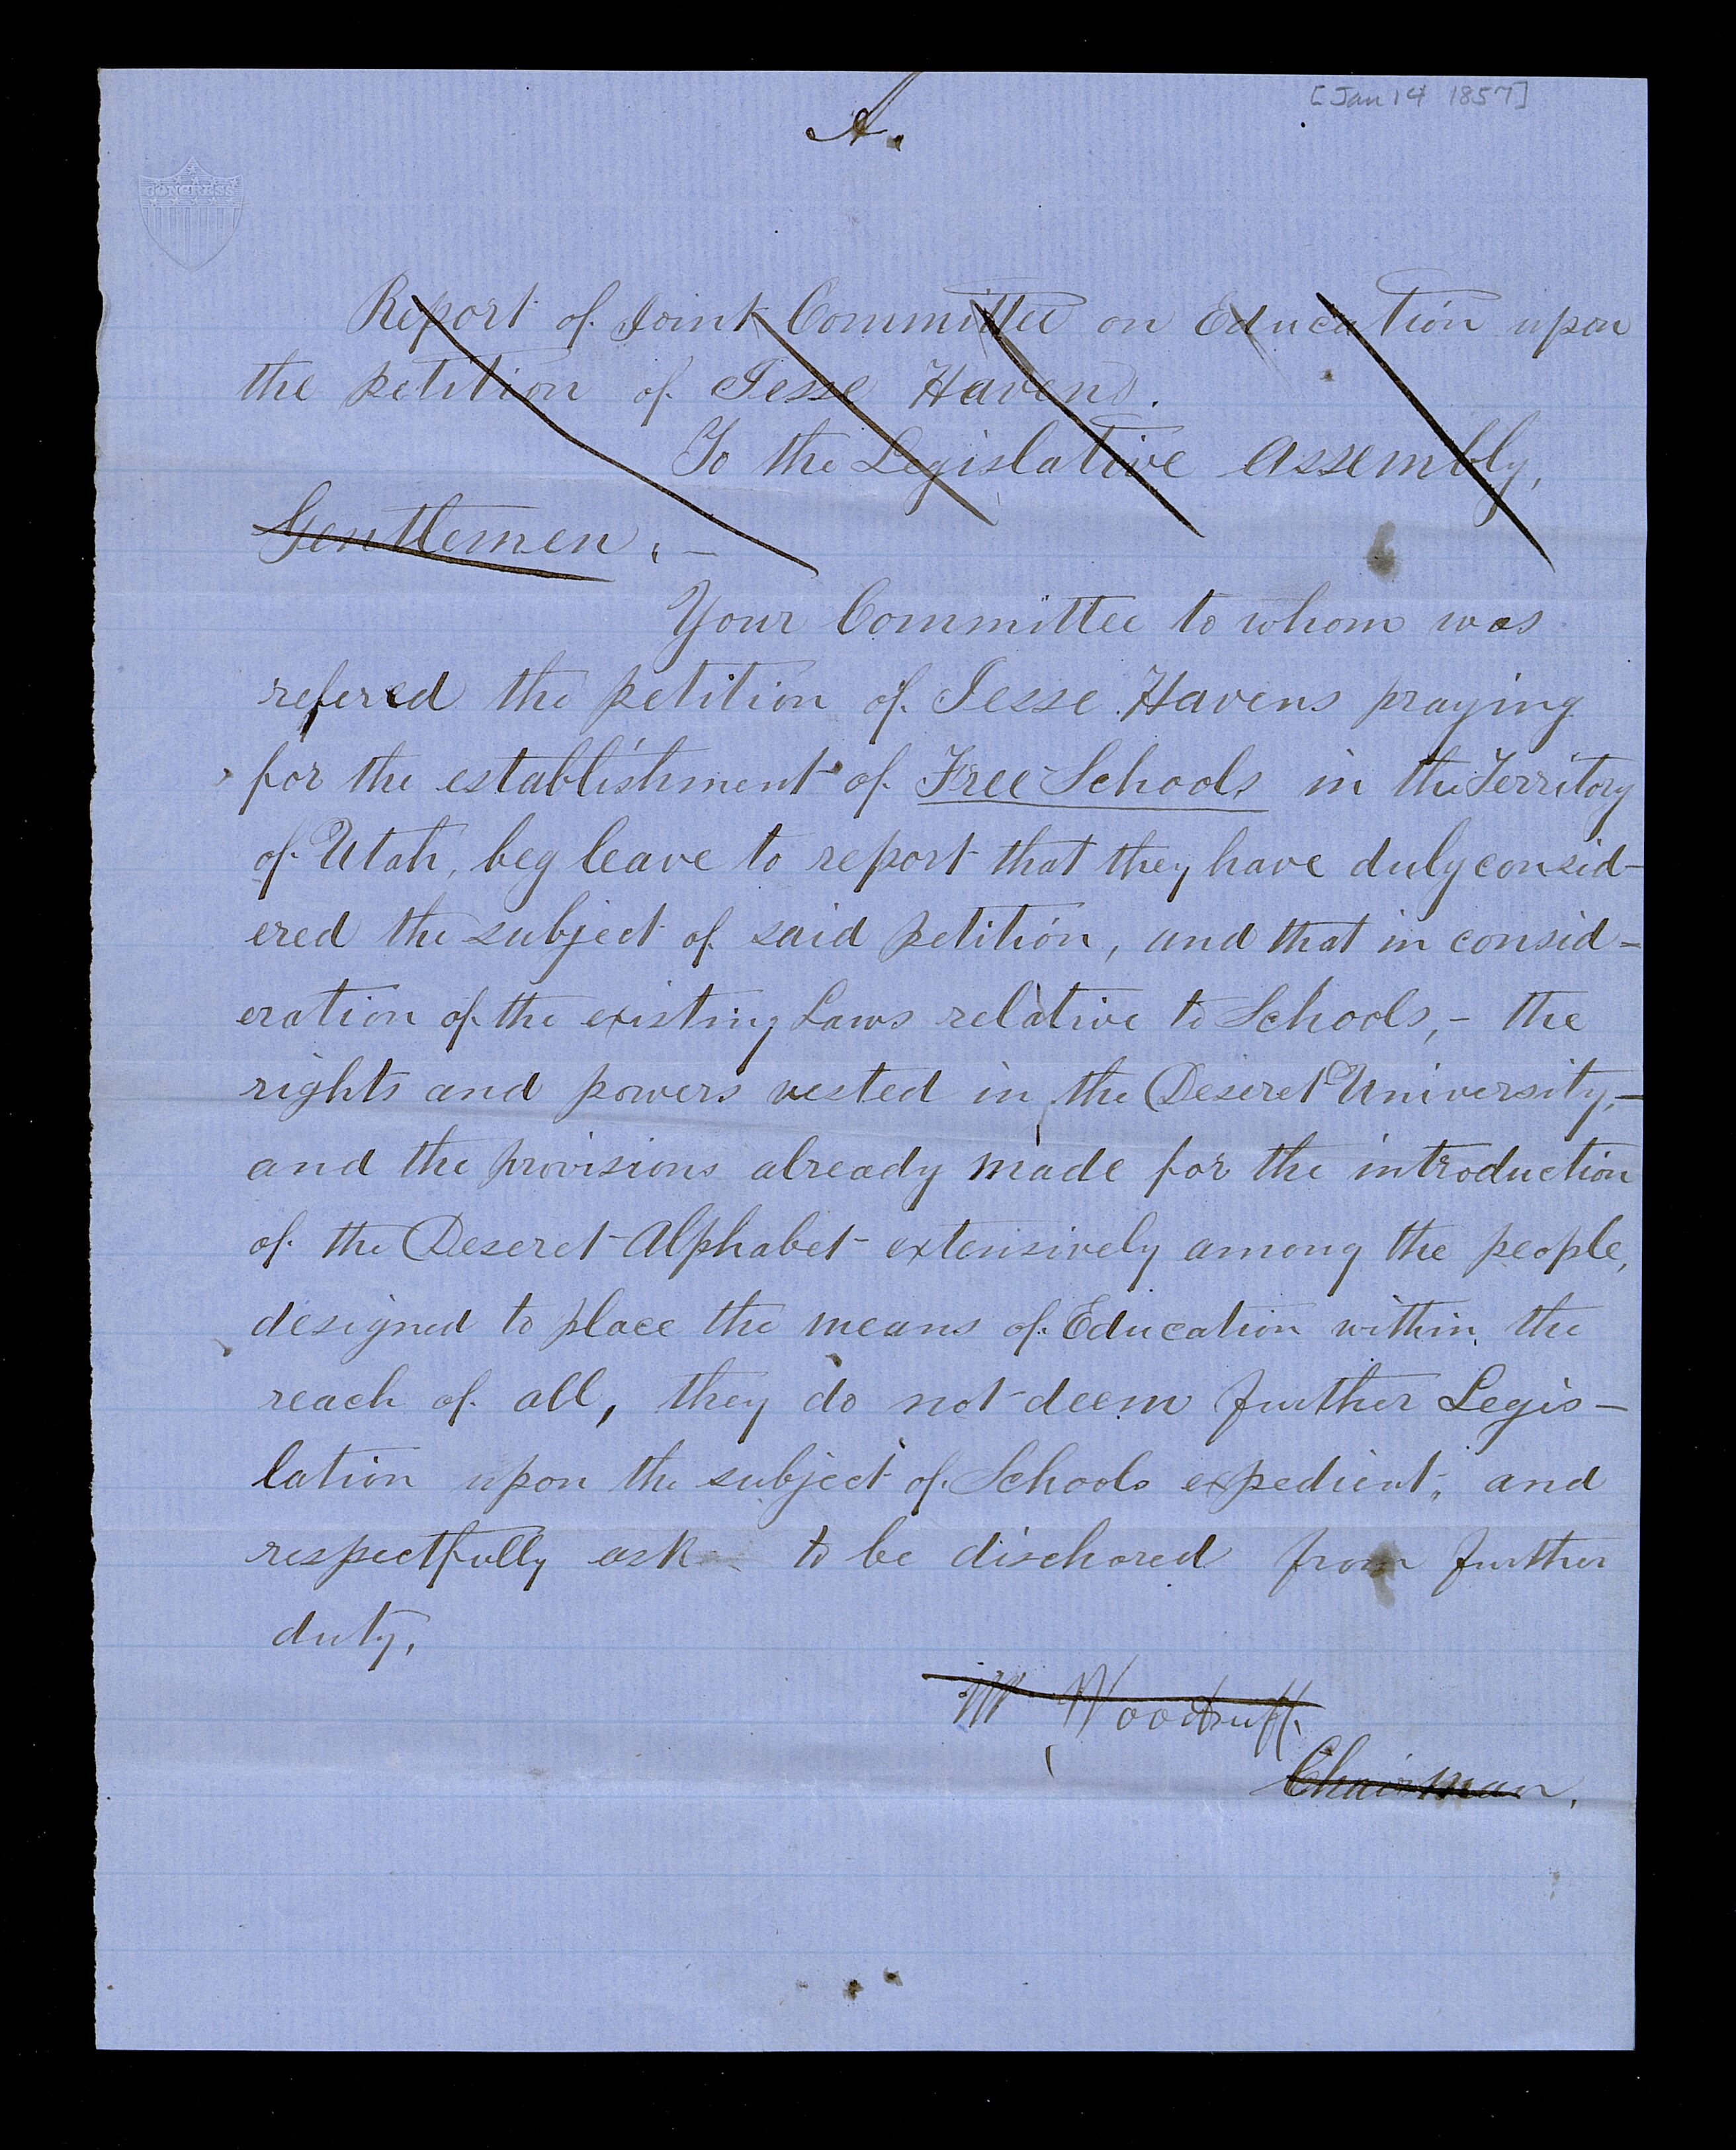 [Jan 14 1857]
A.
CONGRESS
Report of Joint Committee on Education upon
the petition of Jesse Havens.
To the Legislative Assembly,
Gentlemen, –
Your Committee to whom was
refered the petition of Jesse Havens praying
for the establishment of Free Schools in the Territory
of Utah, beg leave to report that they have duly consid-
ered the subject of said petition, and that in consid-
eration of the existing Laws relative to Schools, – the
rights and powers vested in the Deseret University, –
and the provisions already made for the introduction
of the Deseret Alphabet extensively among the people,
designed to place the means of Education within the
reach of all, they do not deem further Legis-
lation upon the subject of Schools expedient, and
respectfully ask to be dischared from further
duty.
W Woodruff.
Chairman.